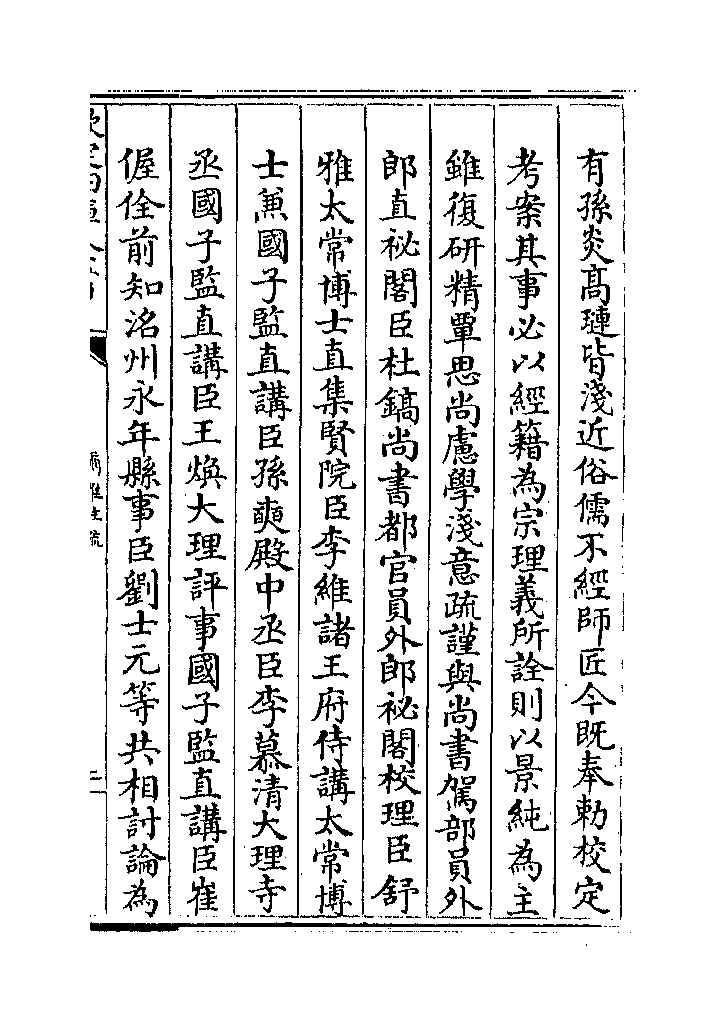 有孫炎髙璉皆淺近俗儒不經師匠今既奉勅校定
考案其事必以經籍為宗理義所詮則以景純為主
雖復研精覃思尚慮學淺意疏謹與尚書駕部員外
郎直祕閣臣杜鎬尚書都官員外郎祕閣校理臣舒
雅太常博士直集賢院臣李維諸王府侍講太常博
士兼國子監直講臣孫奭殿中丞臣李慕清大理寺
丞國子監直講臣王焕大理評事國子監直講臣崔
偓佺前知洺州永年縣事臣劉士元等共相討論為
爾雅注疏
二